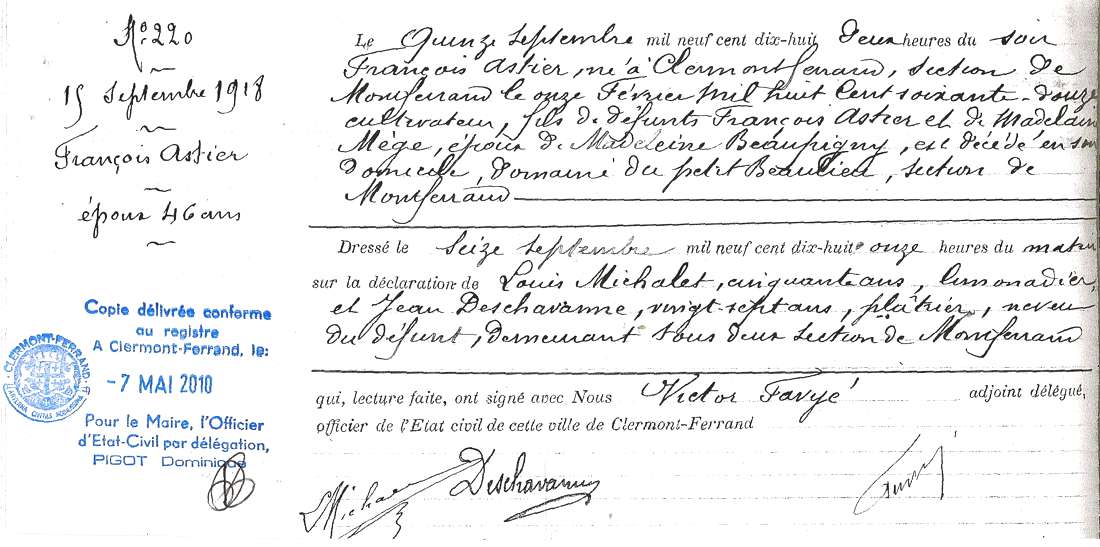 No. 220
15 Septembre 1918
François Astier
époux 46 ans
Copie délivrée conforme
au registre
A Clermont-Ferrand, le:
-7 MAI 2010
CLERMONT-FERRAND
ARVERNA CIVITAS NOBILISSIMA
Pour le Maire, l'Officier
d'Etat-Civil par délégation,
PIGOT Dominique
Le Quinze Septembre mil neuf cent dix-huit deux heures du soir
François Astier, né à Clermontferrand, section de
Montferrand le onze Février mil huit cent soixante-douze
cultivateur, fils de défunts François Astier et de Madelaine
Mège, époux de Madeleine Beaupigny, est décédé en son
Domicile, domaine du petit Beaulieu, section de
Montferrand
Dressé le Seize Septembre mil neuf cent dix-huit onze heures du matin
sur la déclaration de Louis Michalet, cinquante ans, limonadier,
et Jean Deschavanne, vingt-sept ans, plâtrier, neveu
du défunt, demeurant tous deux section de Montferrand
qui, lecture faite, ont signé avec Nous Victor Favyé adjoint délégué,
officier de l'Etat civil de cette ville de Clermont-Ferrand
LMichalet
Deschavanne